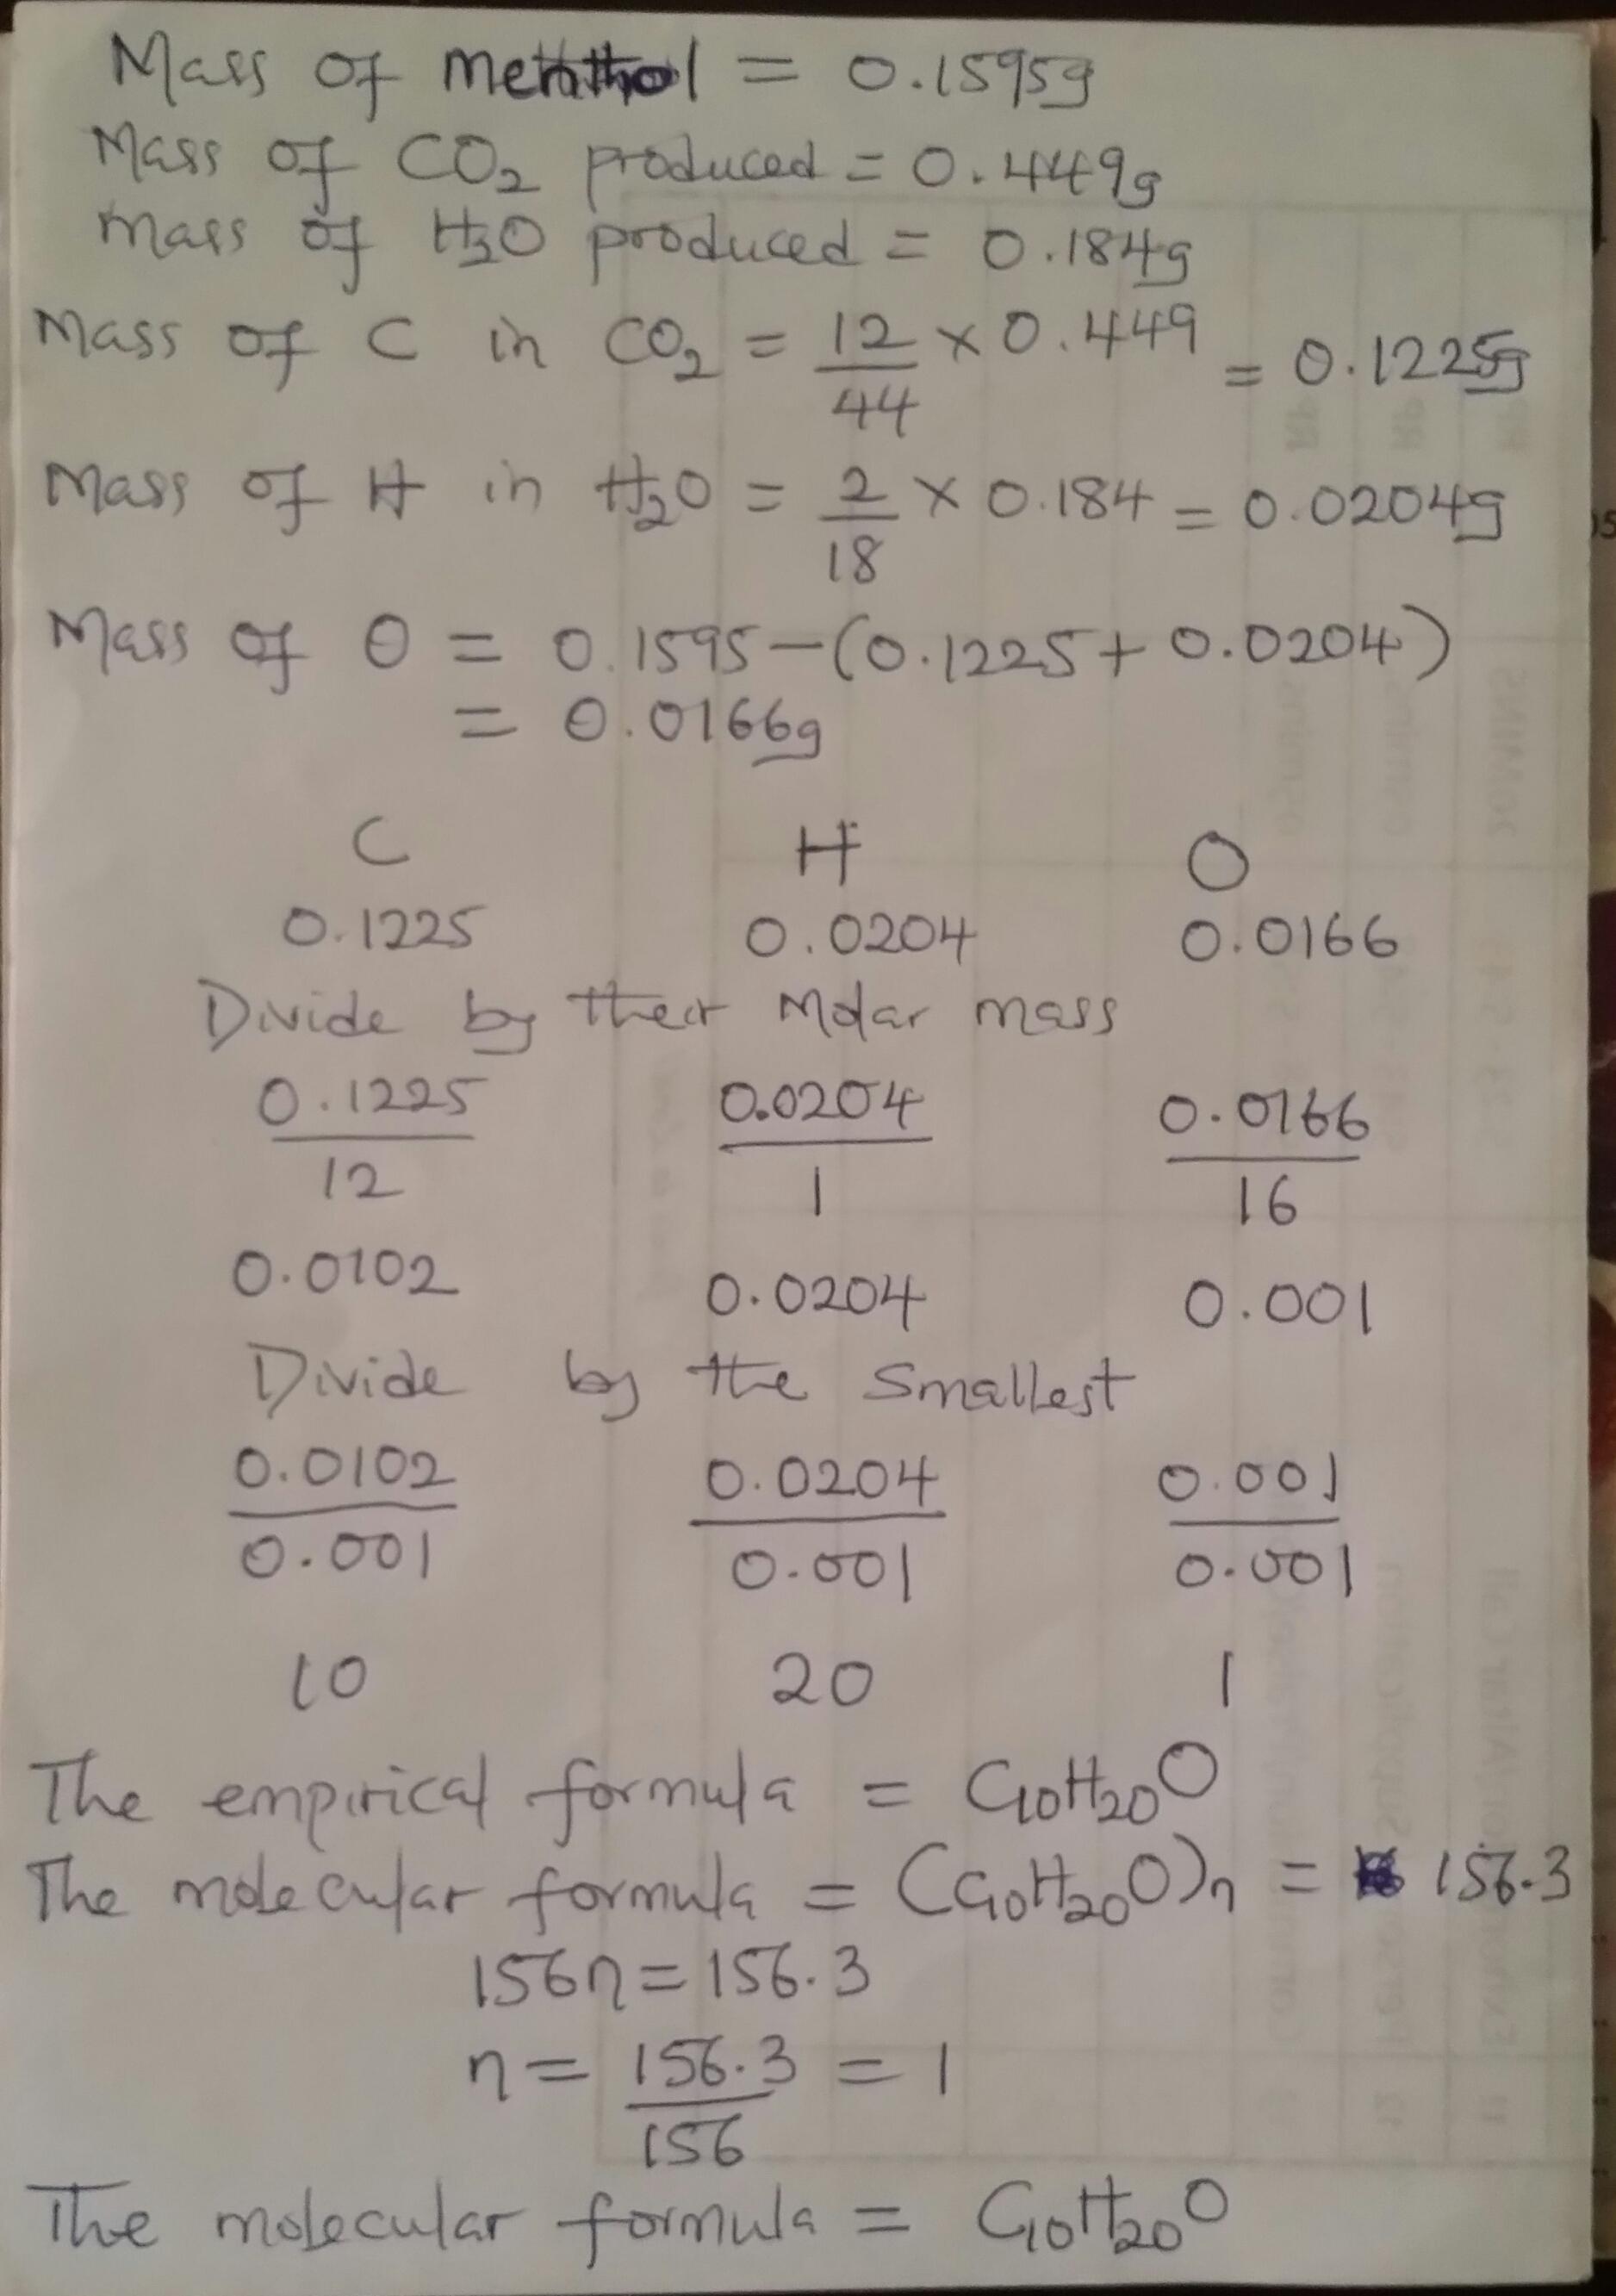 Mass of menthol = 0.1595g
Mass of CO₂ produced = 0.449g
Mass of H₂O produced = 0.184g
Mass of C in CO₂ = 12/44 × 0.449 = 0.1225g
Mass of H in H₂O = 2/18 × 0.184 = 0.0204g
Mass of O = 0.1595 – (0.1225 + 0.0204)
= 0.0166g
C H O
0.1225 0.0204 0.0166
Divide by their Molar mass
0.1225/12 0.0204/1 0.0166/16
0.0102 0.0204 0.001
Divide by the Smallest
0.0102/0.001 0.0204/0.001 0.001/0.001
10 20 1
The empirical formula = C₁₀H₂₀O
The molecular formula = (C₁₀H₂₀O)n = 156.3
156n = 156.3
n = 156.3/156 = 1
The molecular formula = C₁₀H₂₀O